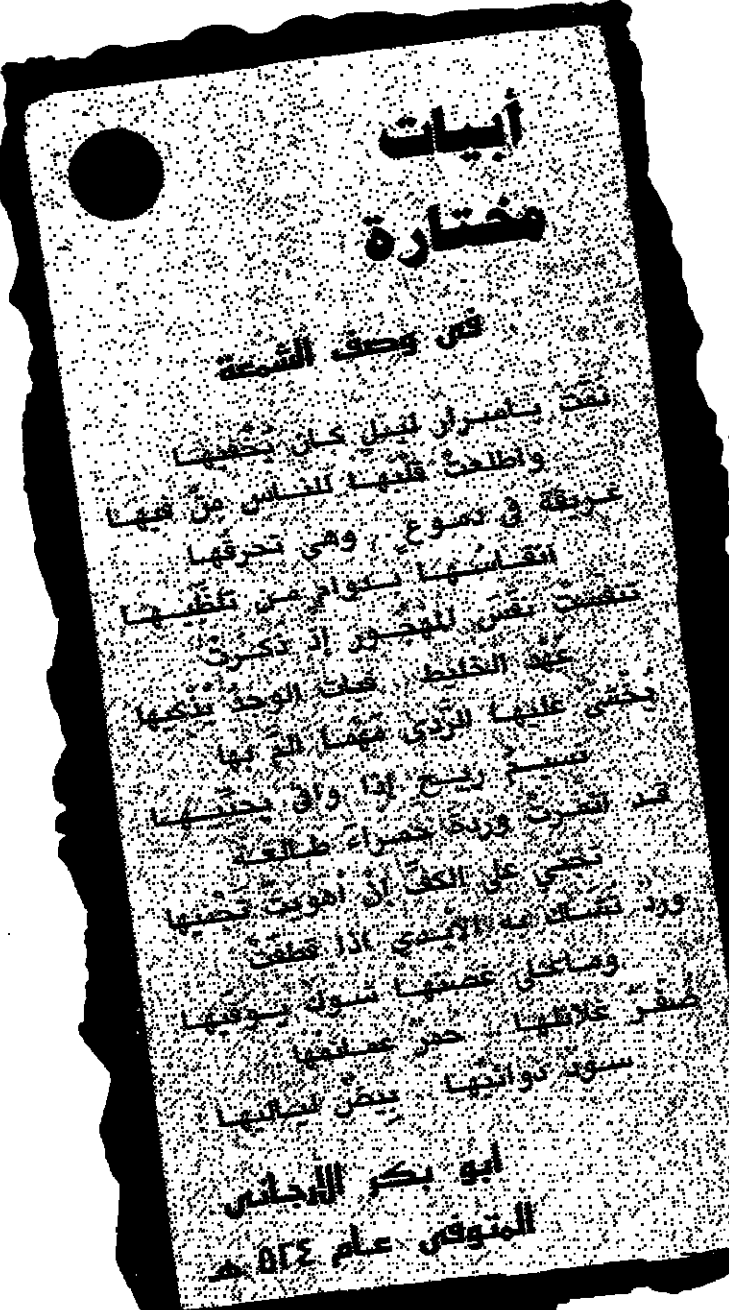 أبيات
مختارة
في وصف الشمعة
نمّت بأسرار ليل كان يُخْفيها
واطلعتْ قلْبها للناس مِنْ فيها
غريقة في دموع .. وهي تحرقها
أنفاسُها بدوامٍ من تلظّيها
تنفست نفَسَ المهجور إذ ذكرتْ
عهْد الخليط .. فبات الوجدُ يُبْكيها
يُخْشى عليها الردى مهْما ألمّ بها
نسيمُ ريح إذا وافى يحيّيها
قد أثمرتْ وردة حمراء طالعة
تجني على الكفّ أنْ أهويت تجْنيها
وردٌ تُشاك به الأيدي إذا قطفتْ
وما على غصنها شوك يوقّيها
صُفْرٌ غلائلها .. حمرٌ عمائمها
سودٌ ذوائبُها .. بيضٌ لياليها
أبو بكر الأرجاني
المتوفى عام ٥٢٤ هـ